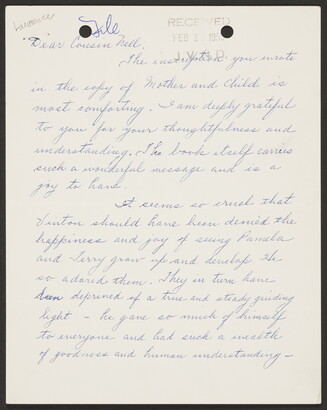 Lawrence
File
RECEIVED
FEB 1
J.V.N.D.
Dear Cousin Ned.
The inscription you wrote
in the copy of Mother and Child is
most comforting. I am deeply grateful
to you for your thoughtfulness and
understanding. The book itself carries
such a wonderful message and is a
joy to have.
It seems so cruel that
Vinton should have been denied the
happiness and joy of seeing Pamela
and Terry grow up and develop. He
so adored them. They in turn have
been deprived of a true and steady guiding
light - he gave so much of himself
to everyone and had such a wealth
of goodness and human understanding -